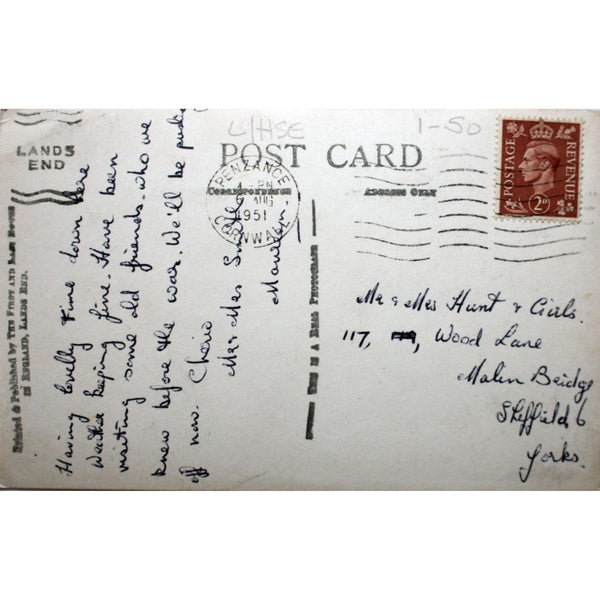 LANDS
END
L/HSE
1-50
POST CARD
CORRESPONDENCE
ADDRESS ONLY
PENZANCE
AUG
1951
CORNWALL
POSTAGE
REVENUE
2D
Printed & Published by The First and Last House
in England, Lands End.
Having lovelly time down here
weather keeping fine. Have been
visiting some old friends who we
knew before the war. We'll be
off now. Cheerio
Mr & Mrs
THIS IS A REAL PHOTOGRAPH
Mr & Mrs Hunt & Girls.
117, Wood Lane
Malin Bridge
Sheffield 6
Yorks.